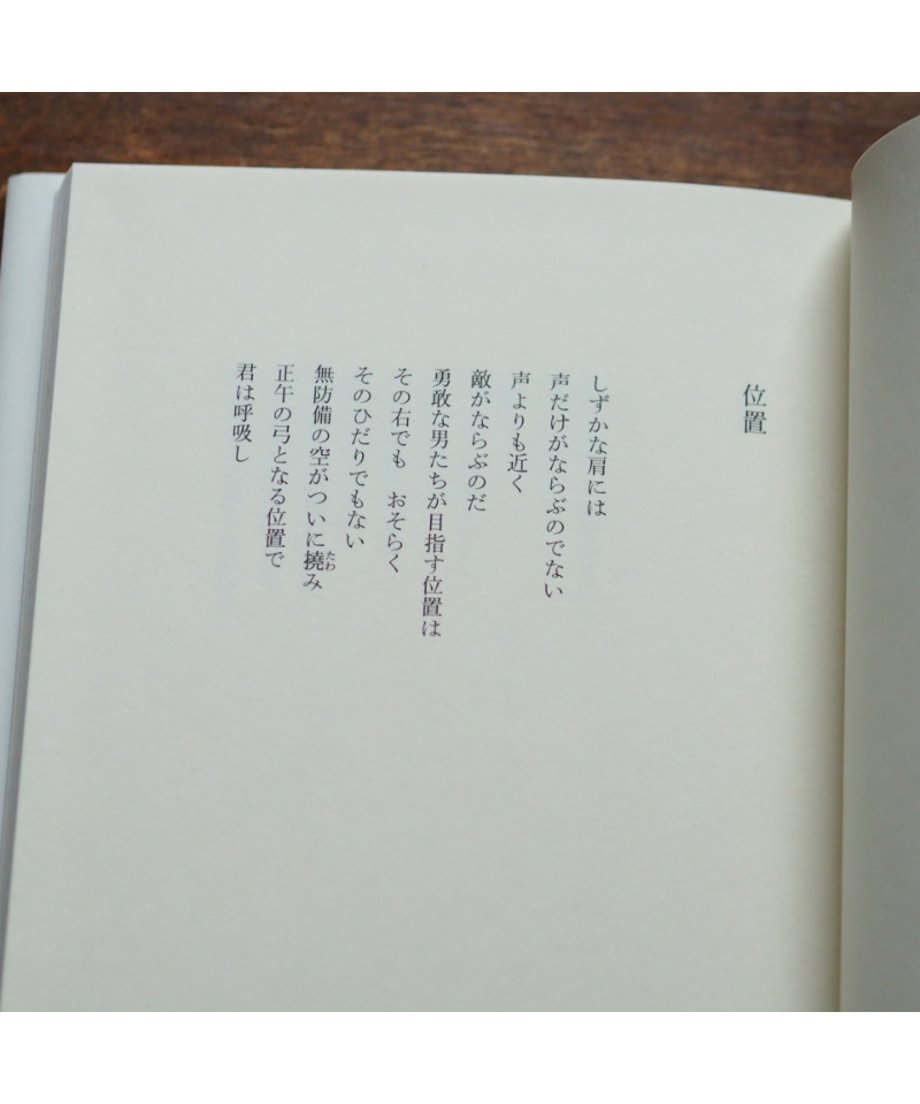 位置
しずかな肩には
声だけがならぶのでない
声よりも近く
敵がならぶのだ
勇敢な男たちが目指す位置は
その右でも　おそらく
そのひだりでもない
無防備の空がついに撓み
たわ
正午の弓となる位置で
君は呼吸し